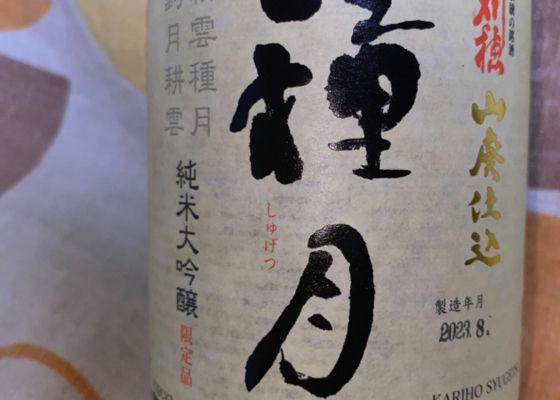 刈穂
山廃仕込
製造年月
2023.8.
KARIHO SYUGETSU
種月
しゅげつ
雲種月
月耕雲
純米大吟醸
限定品